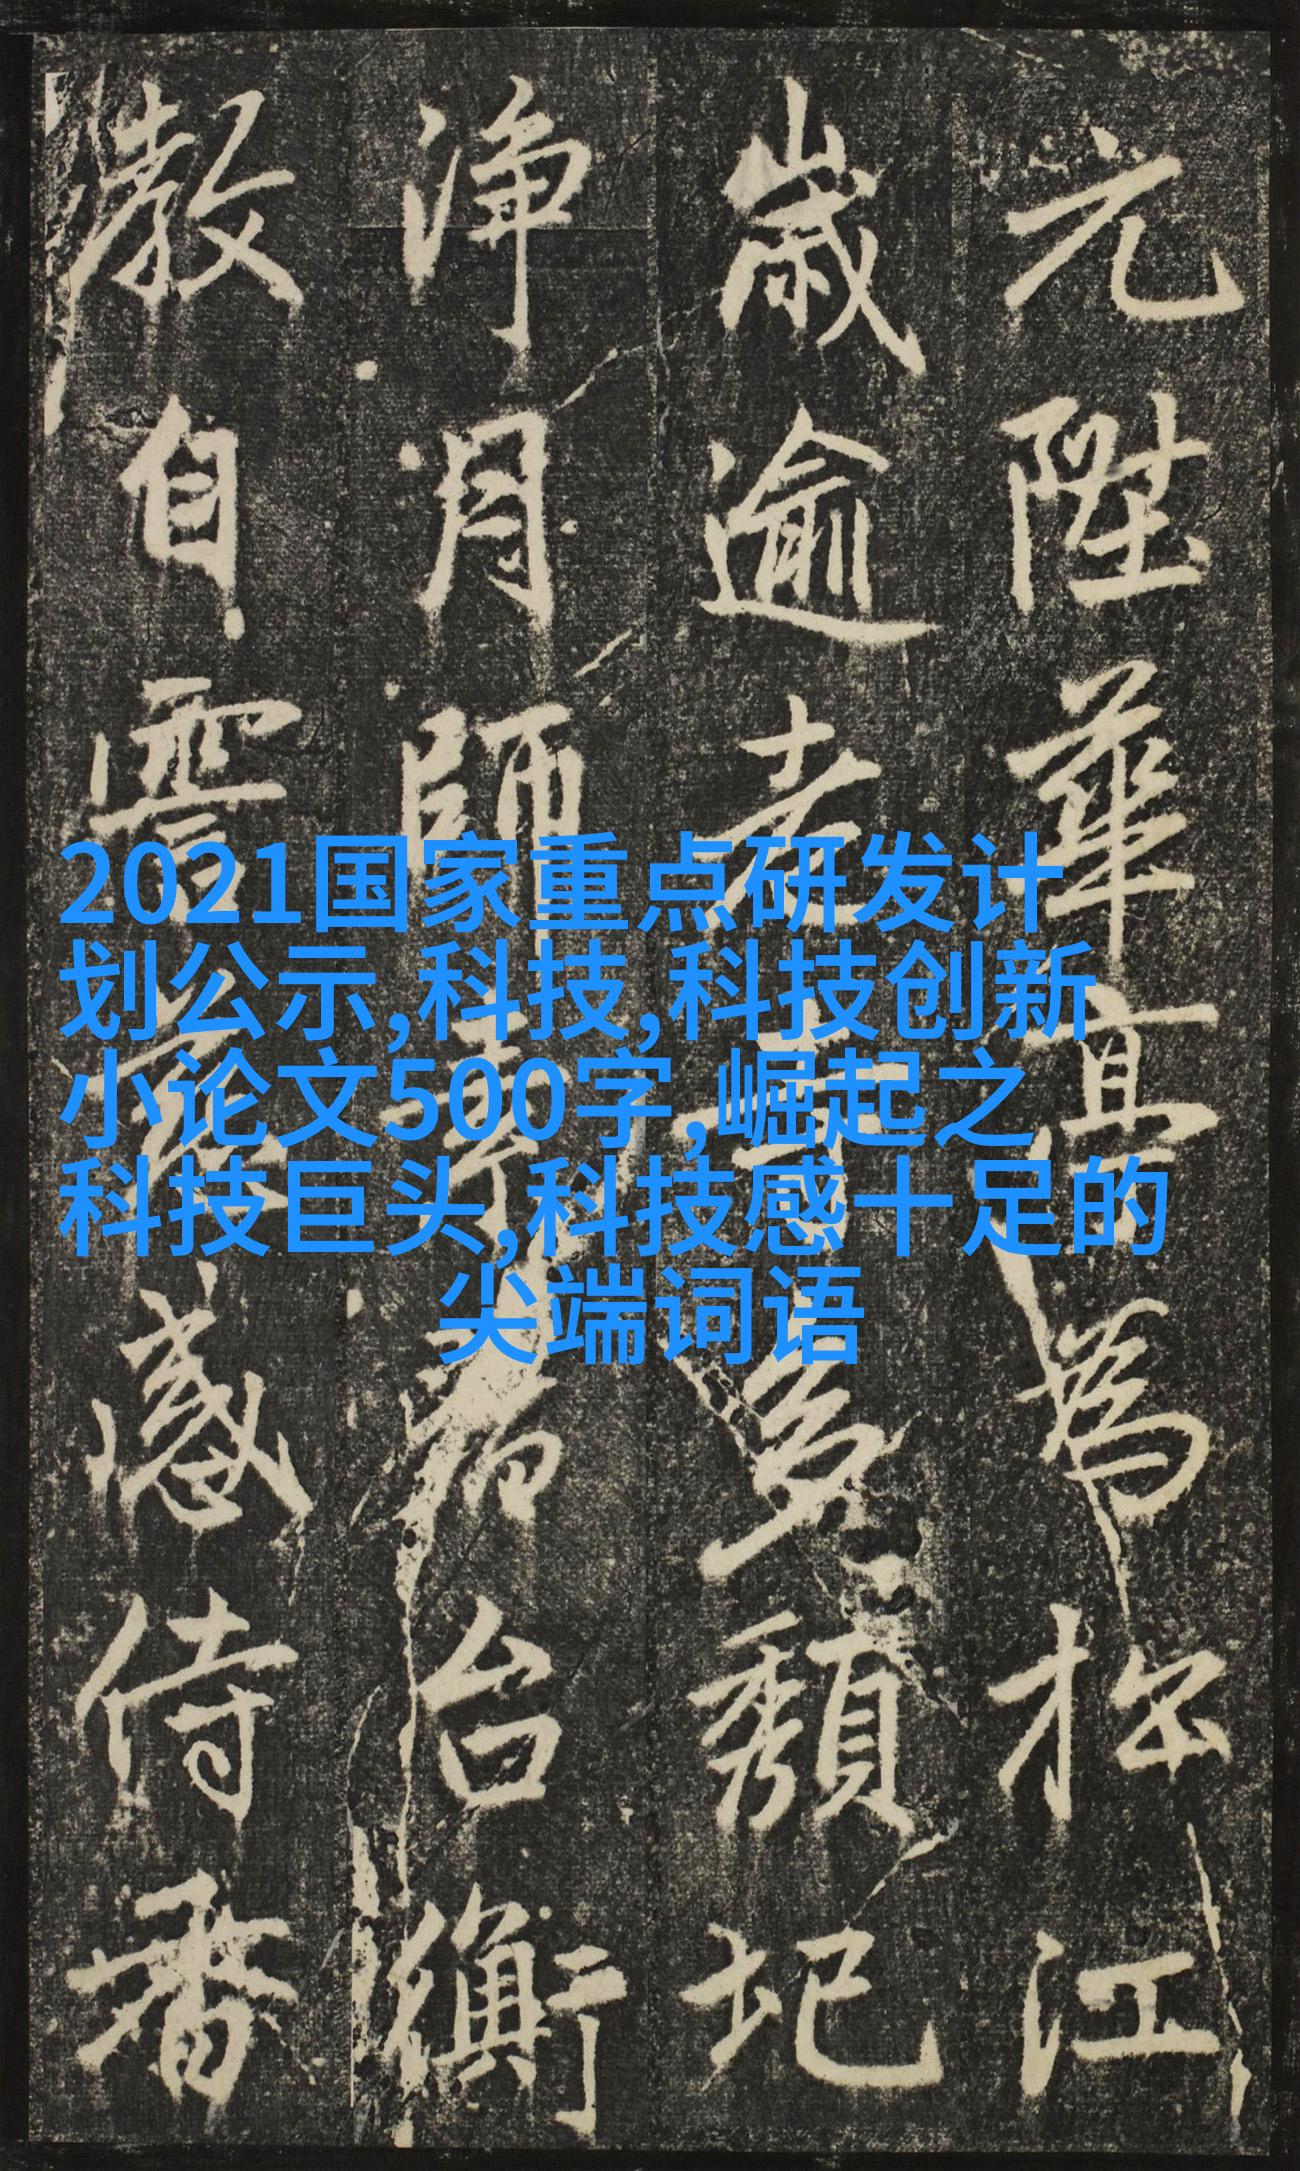 元陞華真為於江
歲逾老
多頹圮
淨月師
台衡
教自
感侍香
2021国家重点研发计
划公示,科技,科技创新
小论文500字,崛起之
科技巨头,科技感十足的
尖端词语